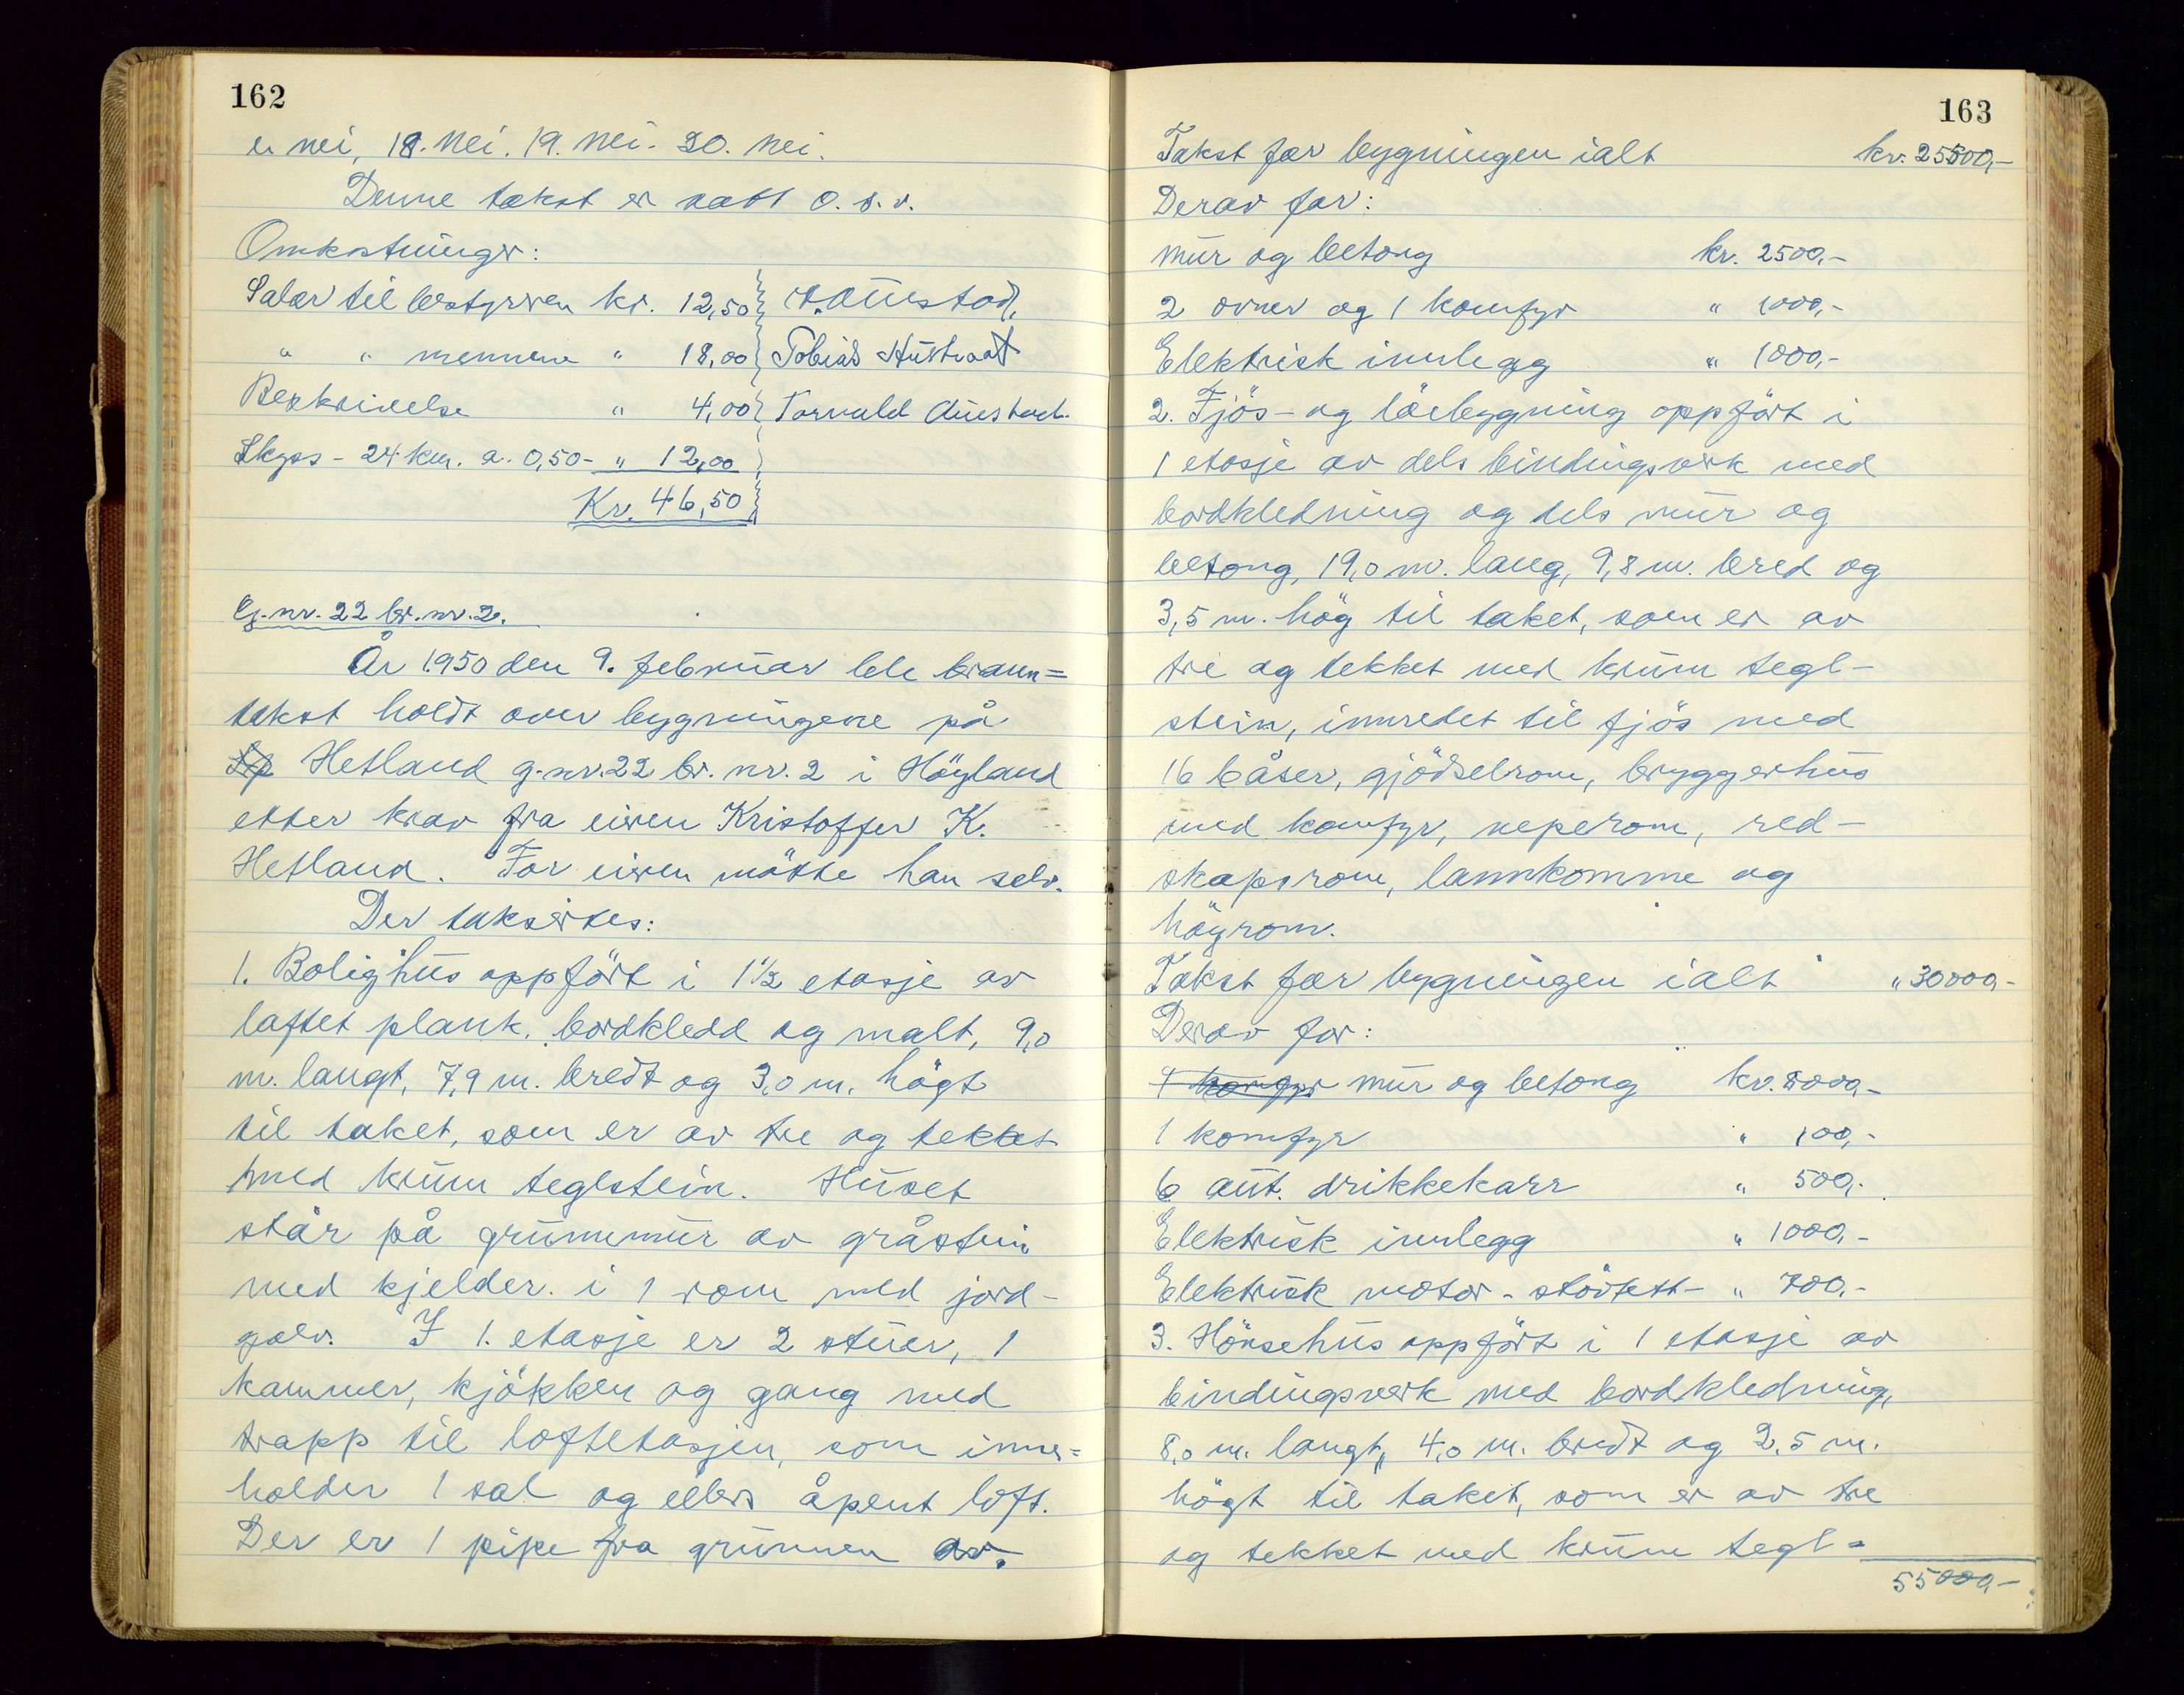 162
er nei, 18. nei. 19. nei. 20. nei.
Denne takst er satt o.s.v.
Omkostninger:
Salær til bestyreren kr. 12,50 A. Austad.
" " mennene " 18,00 Tobias Hustvedt
Beskrivelse " 4,00 Torvald Austad.
Skyss - 24 km. a. 0,50 - " 12,00
Kr. 46,50
G.nr. 22 br.nr. 2.
År 1950 den 9. februar ble brann=
takst holdt over bygningene på
Hetland g.nr. 22 br. nr. 2 i Höyland
etter krav fra eieren Kristoffer K.
Hetland. For eieren mötte han selv.
Der taksertes:
1. Bolighus oppfört i 1½ etasje av
laftet plank, bordkledd og malt, 9,0
m. langt, 7,9 m. bredt og 3,0 m. högt
til taket, som er av tre og tekket
med krum teglstein. Huset
står på grunnmur av gråstein
med kjelder i 1 rom med jord-
golv. I 1. etasje er 2 stuer, 1
kammer, kjökken og gang med
trapp til loftetasjen, som inne=
holder 1 sal og ellers åpent loft.
Der er 1 pipe fra grunnen av.
163
Takst for bygningen ialt kr. 25500,-
Derav for:
mur og betong kr. 2500,-
2 ovner og 1 komfyr " 1000,-
Elektrisk innlegg " 1000,-
2. Fjös- og löebygning oppfört i
1 etasje av dels bindingsverk med
bordkledning og dels mur og
betong, 19,0 m. lang, 9,8 m. bred og
3,5 m. hög til taket, som er av
tre og tekket med krum tegl-
stein, innredet til fjös med
16 båser, gjödselrom, bryggerhus
med komfyr, neperom, red-
skapsrom, lannkomme og
höyrom.
Takst for bygningen ialt " 30000,-
Derav for:
1 komfyr mur og betong kr. 8000,-
1 komfyr " 100,-
6 aut. drikkekarr " 500,-
Elektrisk innlegg " 1000,-
Elektrisk motor - stövtett - " 700,-
3. Hönsehus oppfört i 1 etasje av
bindingsverk med bordkledning,
8,0 m. langt, 4,0 m. bredt og 2,5 m.
högt til taket, som er av tre
og tekket med krum tegl=
55000,-